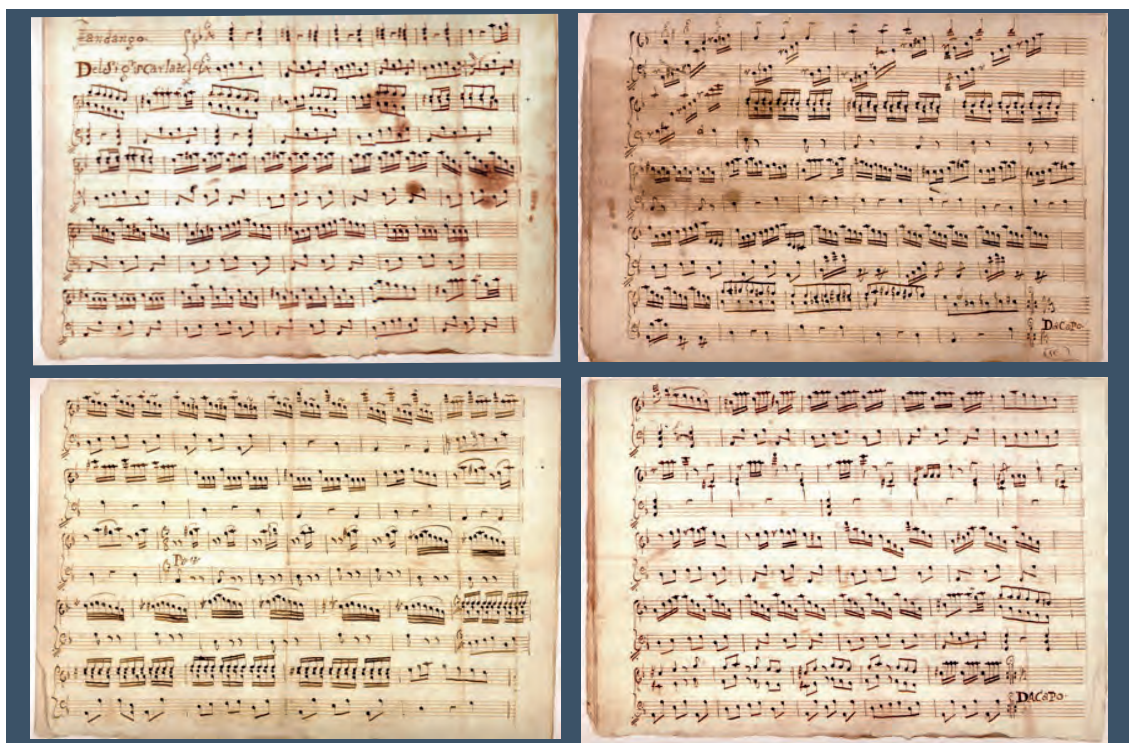 Fandango.
Del Sig.r Scarlate
DaCapo.
DACAPO.